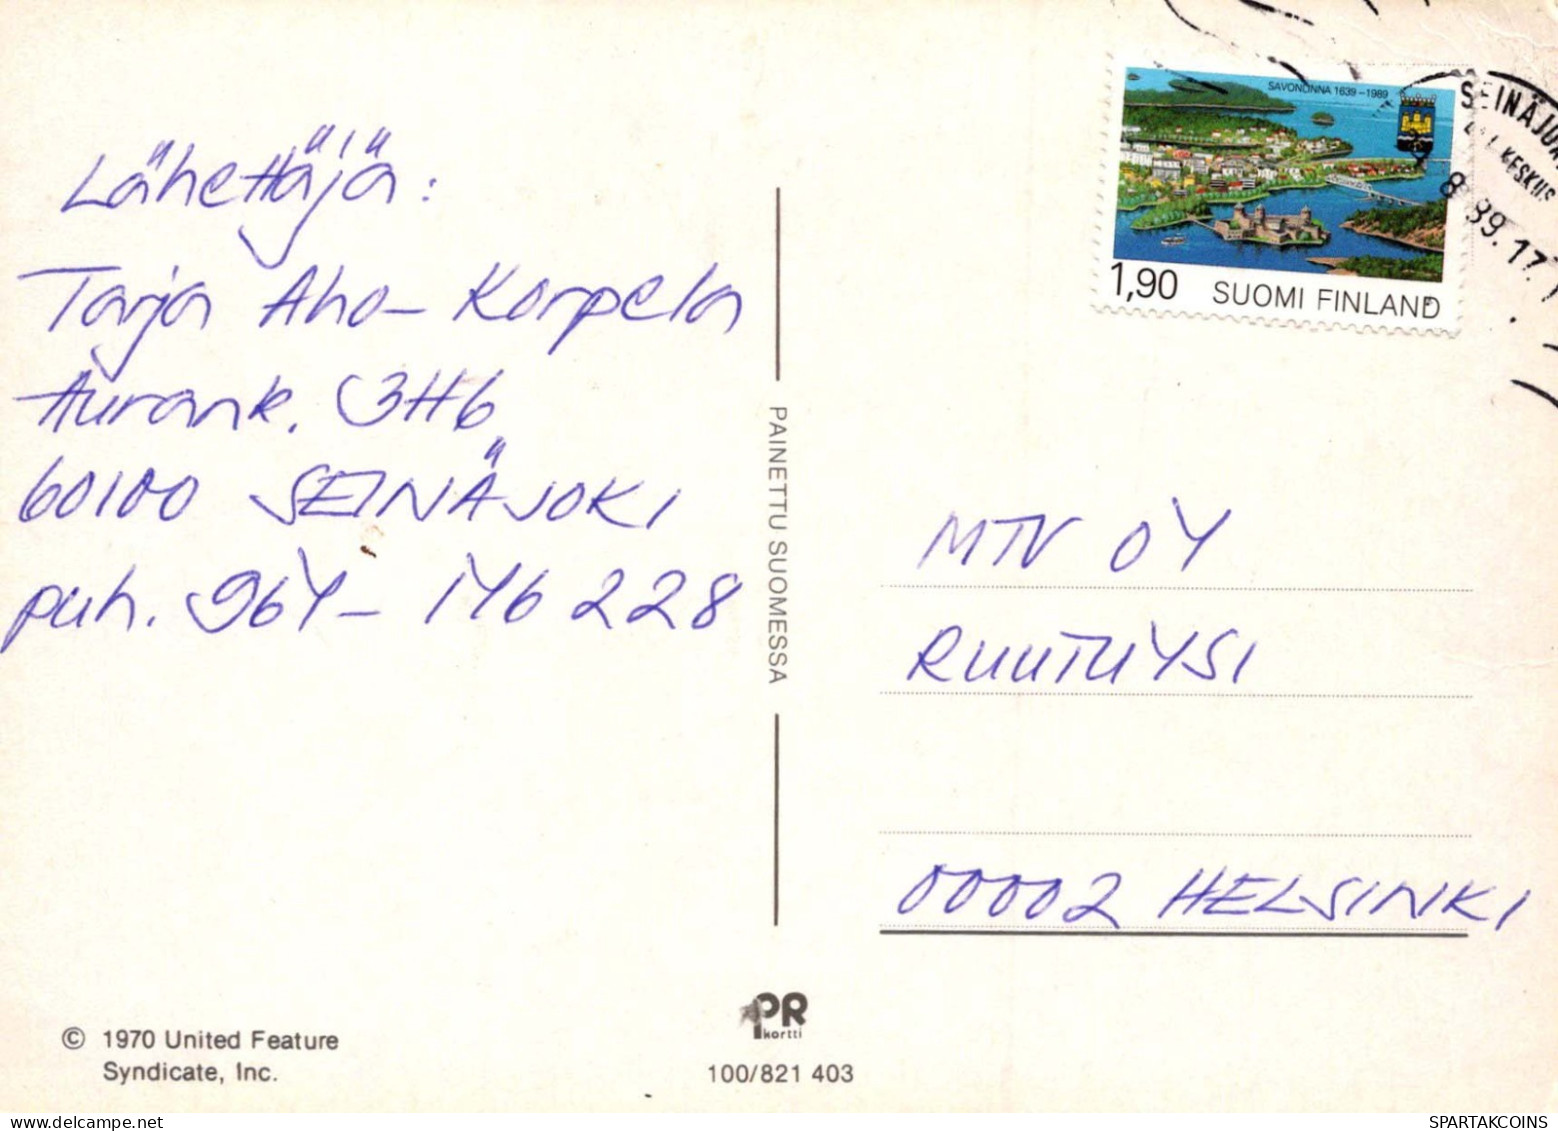 Lähettäjä:
Tarja Aho-Korpela
Aurank. 3H6
60100 SEINÄJOKI
puh. 964-146 228
© 1970 United Feature
Syndicate, Inc.
PAINETTU SUOMESSA
PR
kortti
100/821 403
SAVONLINNA 1639-1989
1,90 SUOMI FINLAND
SEINÄJOKI
KESKUS
8.89.17
MTV OY
RUUTUYSI
00002 HELSINKI
SPARTAKCOINS